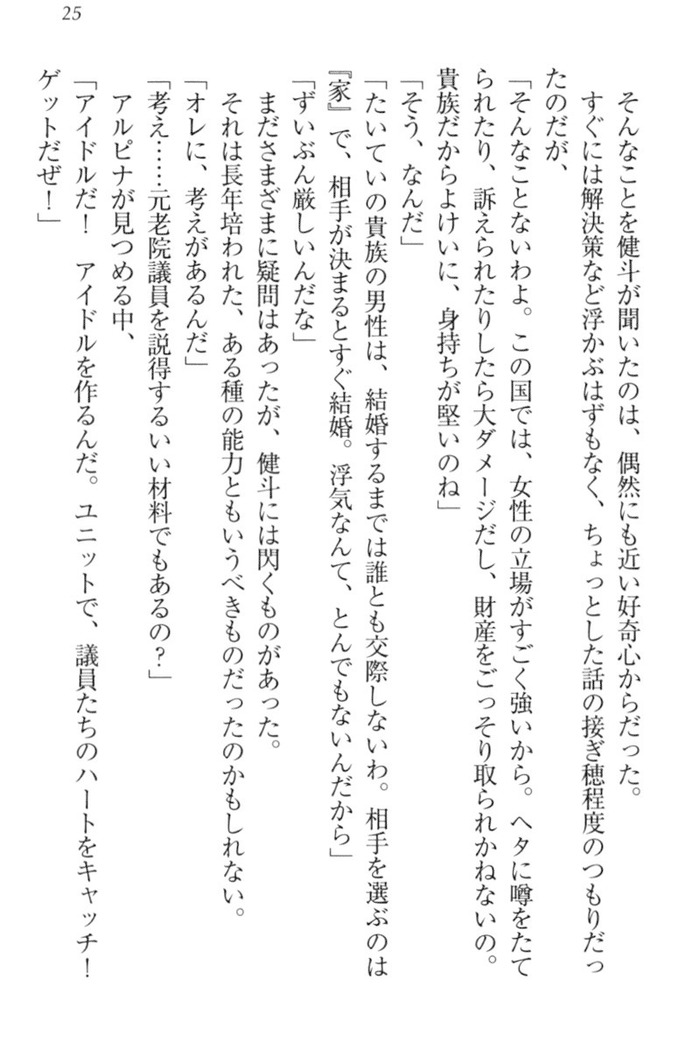 25
そんなことを健斗が聞いたのは、偶然にも近い好奇心からだった。
すぐには解決策など浮かぶはずもなく、ちょっとした話の接ぎ穂程度のつもりだっ
たのだが、
「そんなことないわよ。この国では、女性の立場がすごく強いから。ヘタに噂をたて
られたり、訴えられたりしたら大ダメージだし、財産をごっそり取られかねないの。
貴族だからよけいに、身持ちが堅いのね」
「そう、なんだ」
「たいていの貴族の男性は、結婚するまでは誰とも交際しないわ。相手を選ぶのは
『家』で、相手が決まるとすぐ結婚。浮気なんて、とんでもないんだから」
「ずいぶん厳しいんだな」
まださまざまに疑問はあったが、健斗には閃くものがあった。
それは長年培われた、ある種の能力ともいうべきものだったのかもしれない。
「オレに、考えがあるんだ」
「考え……元老院議員を説得するいい材料でもあるの？」
アルピナが見つめる中、
「アイドルだ！　アイドルを作るんだ。ユニットで、議員たちのハートをキャッチ！
ゲットだぜ！」